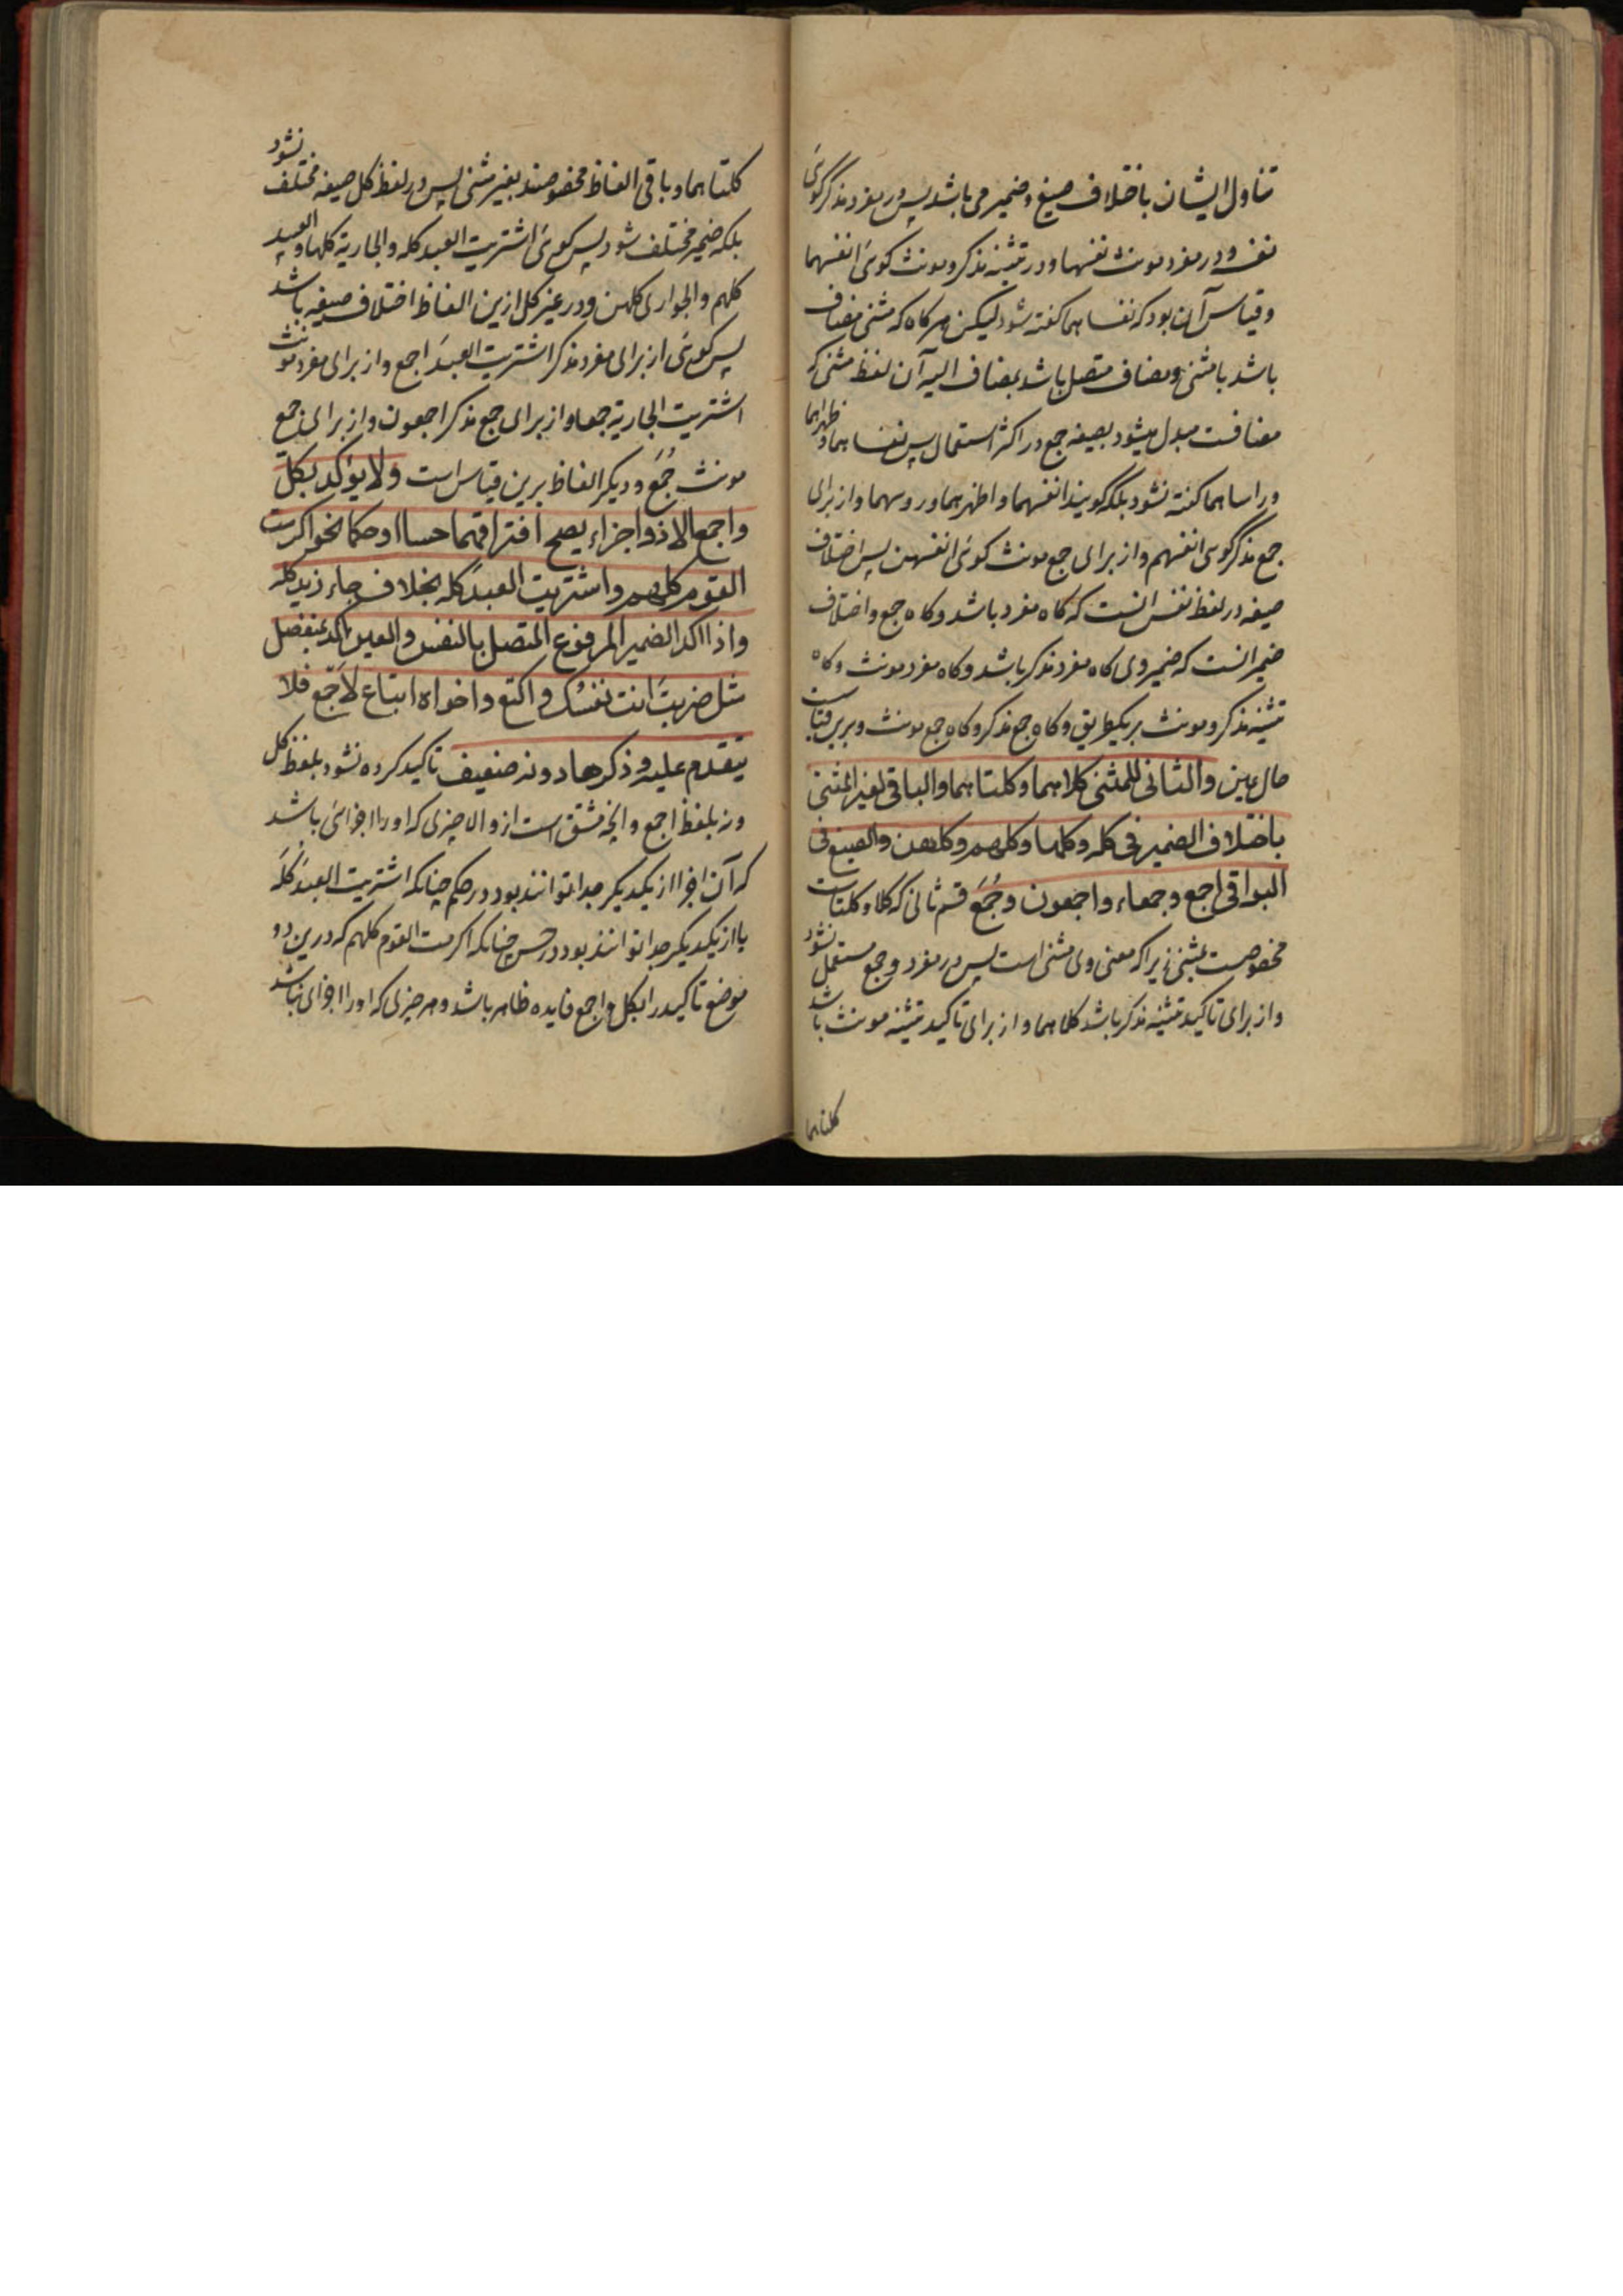 تناول ایشان باختلاف صیغ و ضمیر می باشد پس در مفرد مذکر کوئی
نفسه و در مفرد مونث نفسها و در تثنیه مذکر و مونث کوئی انفسهما
و قیاس آن بود که نفساهما کفته شود لیکن هرکاه که مثنی مضاف
باشد با مثنی و مضاف متصل باشد بمضاف الیه آن لفظ مثنی که
مضافست مبدل میشود بصیغه جمع در اکثر استعمال پس نفساهما و ظهراهما
و راساهما کفته نشود بلکه کویند انفسهما و اظهرهما و روسهما و از برای
جمع مذکر کوئی انفسهم و از برای جمع مونث کوئی انفسهن پس اختلاف
صیغه در لفظ نفس انست که کاه مفرد باشد و کاه جمع و اختلاف
ضمیر انست که ضمیر وی کاه مفرد مذکر باشد و کاه مفرد مونث و کاه
تثنیه مذکر و مونث بر یکطریق و کاه جمع مذکر و کاه جمع مونث و برین قیاست
حال عین والثانی للمثنی کلاهما و کلتاهما والباقی لغیر المثنی
باختلاف الضمیر فی کله و کلها و کلهم و کلهن والصیغ فی
البواقی اجمع و جمعاء و اجمعون و جُمَع قسم ثانی که کلا و کلتاست
مخصوصست بمثنی زیرا که معنی وی مثنی است پس در مفرد و جمع مستعمل نشود
و از برای تاکید تثنیه مذکر باشد کلاهما و از برای تاکید تثنیه مونث باشد
کلتاهما
کلتاهما و باقی الفاظ مخصوصند بغیر مثنی پس در لفظ کل صیغه مختلف نشود
بلکه ضمیر مختلف شود پس کوئی اشتریت العبد کله والجاریة کلها و العبید
کلهم والجواری کلهن و در غیر کل ازین الفاظ اختلاف صیغه باشد
پس کوئی از برای مفرد مذکر اشتریت العبدَ اجمع و از برای مفرد مونث
اشتریت الجاریة جمعا و از برای جمع مذکر اجمعون و از برای جمع
مونث جُمَع و دیکر الفاظ برین قیاس است ولا یؤکد بکلّ
و اجمع الا ذو اجزاء یصح افتراقهما حسا او حکما نحو اکرمت
القوم کلهم و اشتریت العبد کله بخلاف جاء زید کله
و اذا اکد الضمیر المرفوع المتصل بالنفس والعین اکد بمنفصل
مثل ضربتَ انت نفسُک و اکتع و اخواه اتباع لاَجمع فلا
یتقدم علیه و ذکرها دونه ضعیف تاکید کرده نشود بلفظ کل
و نه بلفظ اجمع و انچه مشتق است ازو الا چیزی که او را اجزائی باشد
که آن اجزا از یکدیکر جدا توانند بود در حکم چنانکه اشتریت العبدَ کلَه
یا از یکدیکر جدا توانند بود در حس چنانکه اکرمت القوم کلهم که درین دو
موضع تاکید را بکل و اجمع فایده ظاهر باشد و هر چیزی که او را اجزای نباشد